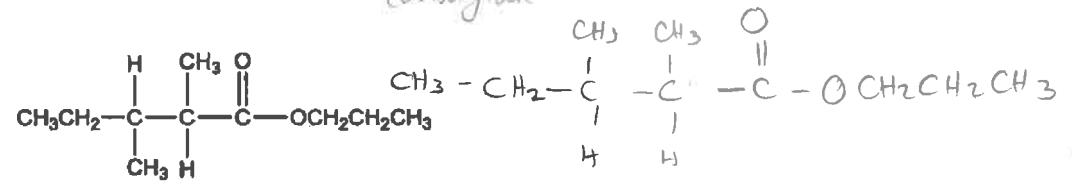 H CH₃ O
CH₃CH₂—C—C—C—OCH₂CH₂CH₃
CH₃ H
CH₃ CH₃ O
CH₃ – CH₂ – C – C – C – O CH₂CH₂CH₃
H H